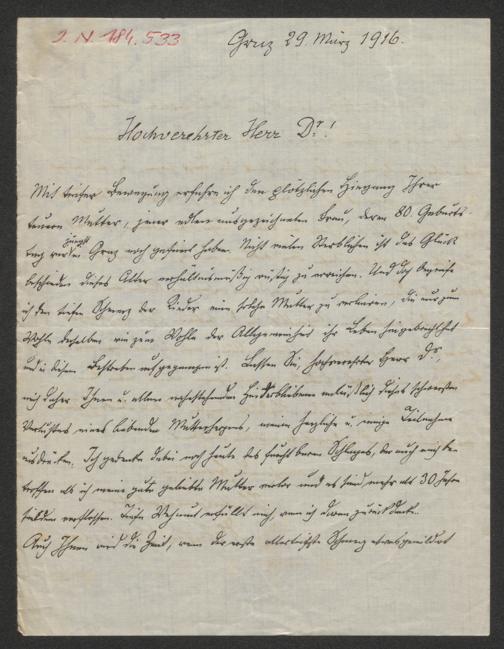 I. N. 184.533
Graz 29. März 1916.
Hochverehrter Herr Dr!
Mit tiefer Bewegung erfuhr ich den plötzlichen Hingang Ihrer
teuren Mutter, jener edlen ausgezeichneten Frau, deren 80. Geburts-
tag wir in Graz noch gefeiert haben. Nicht vielen Sterblichen ist das Glück
beschieden dieses Alter verhältnismäßig rüstig zu erreichen. Und doch begreife
ich den tiefen Schmerz der Kinder eine solche Mutter zu verlieren, die nur zum
Wohle derselben wie zum Wohle der Allgemeinheit ihr Leben hingebracht hat
und in diesem Bestreben aufgegangen ist. Lassen Sie, hochverehrter Herr Dr,
mich daher Ihnen u. allen Hinterbliebenen anläßlich dieses schwersten
Verlustes eines liebenden Mutterherzens, meine herzliche u. innige Teilnahme
ausdrücken. Ich gedenke dabei noch heute des furchtbaren Schlages, der auch mich be-
troffen als ich meine gute geliebte Mutter verlor und es sind mehr als 30 Jahre
seitdem verflossen. Tiefe Wehmut erfüllt mich, wenn ich daran zurückdenke.
Auch Ihnen wird die Zeit, wenn der erste allerheftigste Schmerz etwas gemildert